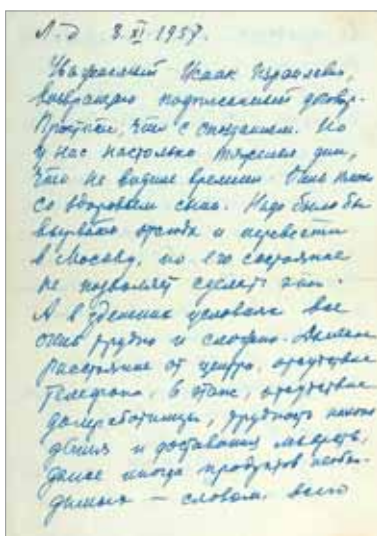 Л-д 3.XI.1957.
Уважаемый Исаак Израилевич,
возвращаю подписанный договор.
Простите, что с опозданием. Но
у нас настолько тяжелые дни,
что не видишь времени. Очень плохо
со здоровьем сына. Надо было бы
вырвать отсюда и перевезти
в Москву, но его состояние
не позволяет сделать это.
А в здешних условиях все
очень трудно и сложно. Дальнее
расстояние от центра, отсутствие
телефона, 6 этаж, отсутствие
домработницы, трудность
и доставания лекарств,
даже иногда продуктов необхо-
димых — словом, всего